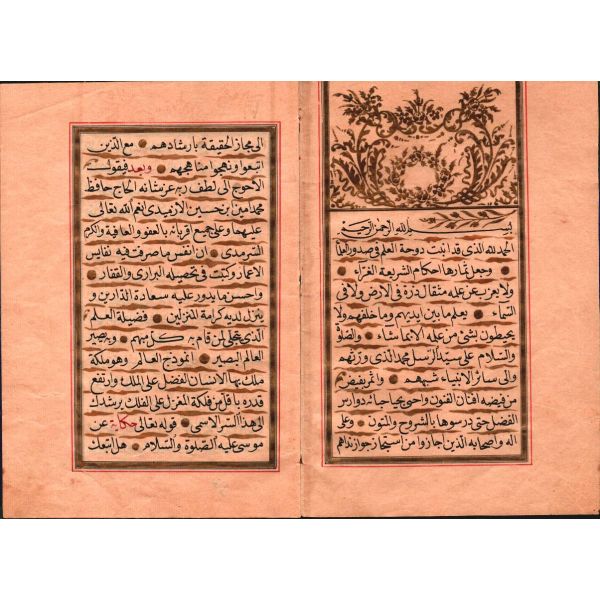 بسم الله الرحمن الرحيم
الحمد لله الذى قد انبت دوحة العلم فى صدور العلماء
وجعل ثمارها احكام الشريعة الغراء
ولا يعزب عن علمه مثقال ذرة فى الارض ولا فى
السماء يعلم ما بين ايديهم وما خلفهم ولا
يحيطون بشئ من علمه الا بما شاء والصلوة
والسلام على سيد الرسل محمد الذى
والى سائر الانبياء
من فيضه افنان الفنون واحيى دوارس
الفضل حتى درسوها بالشروح والمتون وعلى
اله واصحابه الذين اجازوا من استجاز
الى مجاز الحقيقة بارشادهم مع الذين
اتبعوا ونهجوا مناهجهم وبعد فيقول
الاحوج الى لطف ربه عز شانه الحاج حافظ
محمد امين بن حسين الازميدى انعم الله تعالى
عليهما وعلى جميع اقربائه بالعفو والعافية والكرم
السرمدى ان انفس ما صرفت فيه نفايس
الاعمار وكنت فى تحصيله البرارى والقفار
واحسن ما يدور عليه سعادة الدارين و
ينزل لديه كرامة المنزلين فضيلة العلم
الذى على من قام به كل مبهم ويصير
العالم البصير انموذج العالم وهو ملكة
ملك بها الانسان الفضل على الملك وارتفع
قدره باقل من فلكة الغزل على الفلك يرشدك
الى هذا السر الاسمى قوله تعالى حكاية عن
موسى عليه الصلوة والسلام هل اتبعك